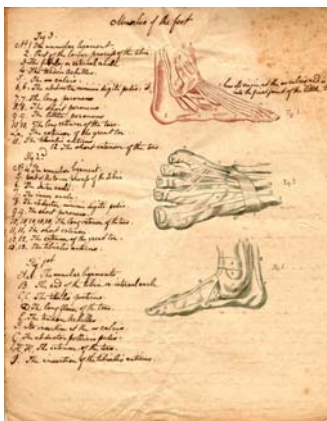 Muscles of the foot
Fig 3.
No 1 The annular ligament.
2. Part of the lower process of the tibia
4. The tendon Achilles
5. The os calcis
6,6. The abductor minimi digiti pedis.
7,7. The long peroneus
8,8. The short peroneus
9,9. The little peroneus
10,10. The long extensor of the toes.
The extensor of the great toe
The tibialis anticus
12. The short extensor of the toes
Fig. 3.
Fig 2d
The annular ligament.
The outer ancle
The inner ancle
The abductor minimi digiti pedis
9,9. The short peroneus
10,10,10,10,10. The long extensor of the toes.
11,11. The short extensor
12,12. The extensor of the great toe.
13. The tibialis anticus
Fig. 2
Fig 1st
A.A. The annular ligaments
B. The end of the tibia or internal ancle
C.C. The tibialis posticus
D. The long flexor of the toes.
E. The tendon Achilles
F. Its insertion at the os calcis
G. The abductor pollicis pedis
H. H. The extensor of the toes.
I. The insertion of the tibialis anticus.
Fig. 1